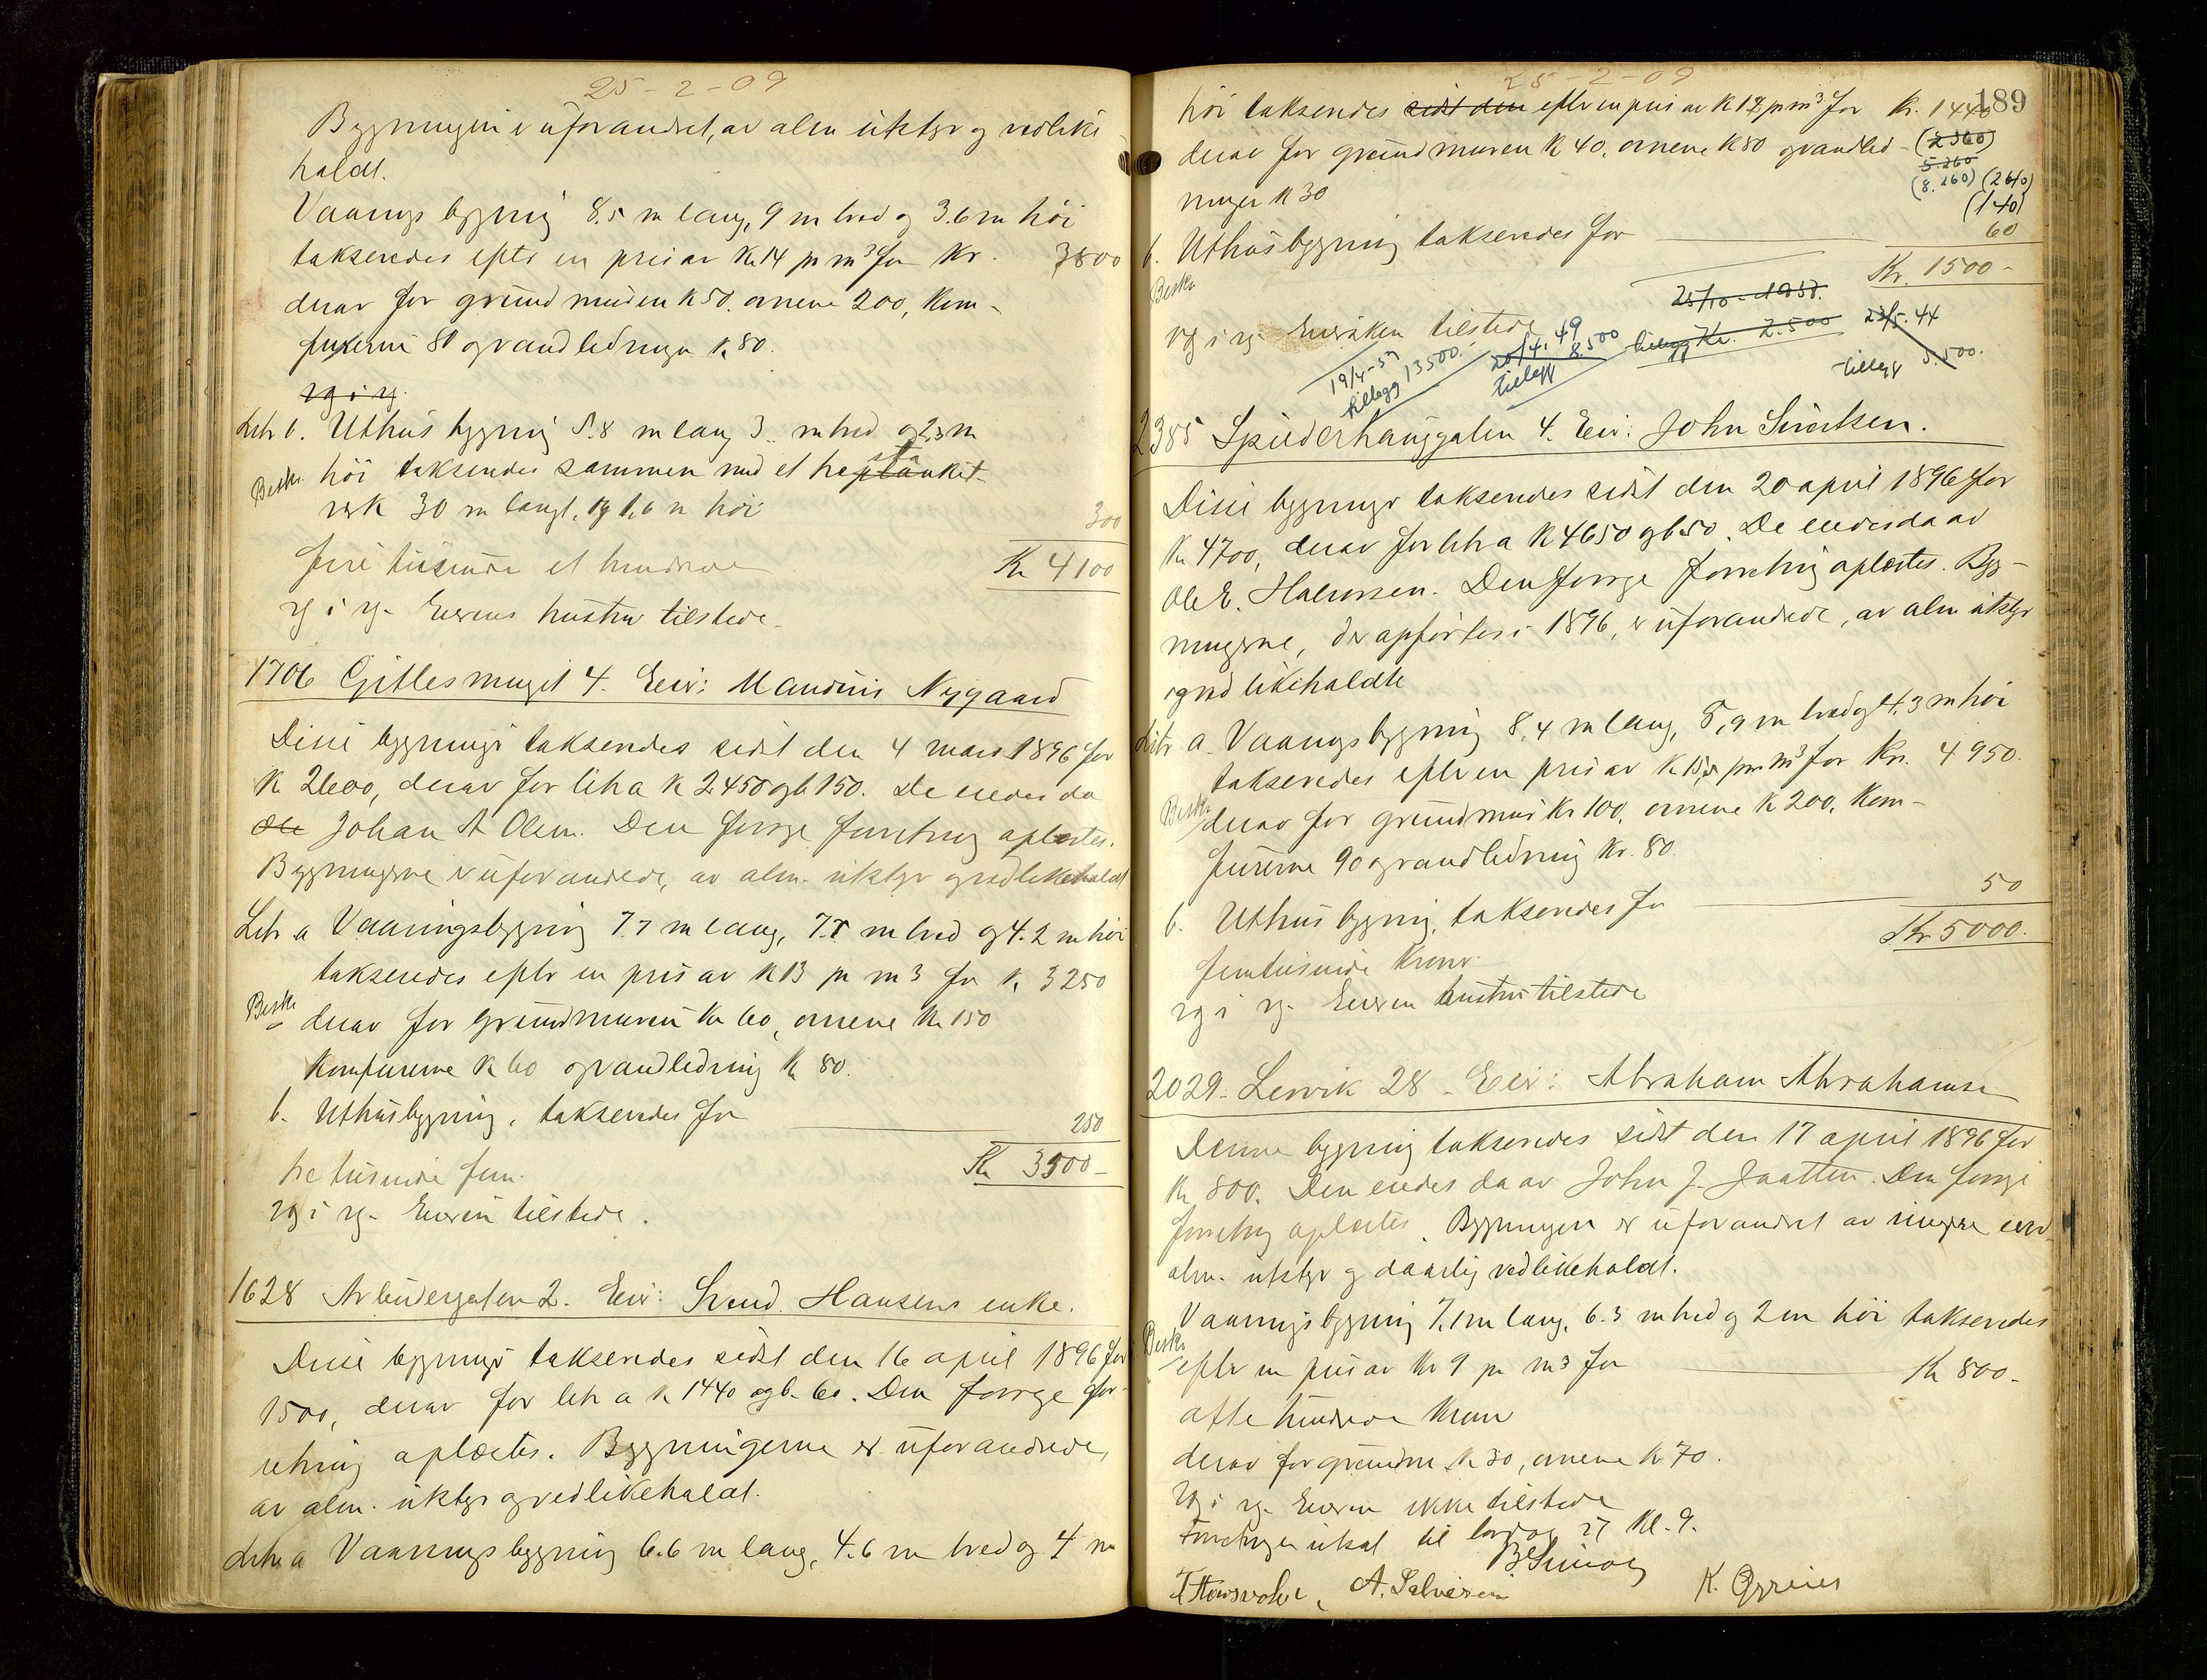 25-2-09
Bygningen er uforandret, av alm utstyr og vedlike
holdt.
Vaaningsbygning 8.5 m lang, 9 m bred og 3.6 m höi
takseredes efter en pris av Kr 14 pr m³ for Kr. 3800
derav for grundmuren K 50. ovnene 200, Kom-
fyrerne 80 og vandledningen K 80.
og i ry.
Litr b. Uthusbygning 5.8 m lang 3 m bred og 2.3 m
Beskr. höi takseredes sammen med et
verk 30 m langt, og 1,6 m höi 300
fire tusinde et hundrede Kr 4100
rg i ry. Eierens hustru tilstede.
1706 Gitlesmuget 4. Eier: Maurinus Nygaard
Disse bygninger takseredes sidst den 4 mars 1896 for
K 2600, derav for litra K 2450 og b 150. De eiedes da
Johan A Olsen. Den forrige forretning oplæstes.
Bygningerne er uforandrede, av alm. utstyr og vedlikeholdt
Litr a Vaaningsbygning 7.7 m lang, 7.7 m bred og 4.2 m höi
takseredes efter en pris av K 13 pr m3 for K. 3250
Beskr derav for grundmuren Kr 60, ovnene Kr 150
Komfurerne K 60 og vandledning Kr 80.
b. Uthusbygning, takseredes for 250
tre tusinde fem. Kr 3500-
rg i ry. Eieren tilstede.
1628 Arbeidergaten 2. Eier: Svend Hansens enke.
Disse bygninger takseredes sidst den 16 april 1896 for
1500, derav for litr a K 1440 og b 60. Den forrige for-
retning oplæstes. Bygningerne er uforandrede,
av alm. utstyr og vedlikeholdt.
Litr a Vaaningsbygning 6.6 m lang, 4.6 m bred og 4 m
25-2-09
189
höi takseredes sidst den efter en pris av K 12 pr m³ for Kr. 1440
derav for grundmuren K 40, ovnene K 80 og vandled- (2360)
5.260
(8.260) (2640)
ninger K 30 (140)
b. Uthusbygning takseredes for 60
Beskr Kr. 1500-
rg i ry. Eier ikke tilstede
25/10-1937. tillegg Kr. 2.500
23/5.44 tillegg 5.500.
20/4.49 tillegg 8.500
19/4-51 tillegg 13500.
2385 Spilderhauggaten 4. Eier: John Sivertsen.
Disse bygninger takseredes sidst den 20 april 1896 for
Kr 4700, derav for litr a K 4650 og b 50. De eiedes da av
Ole E. Halvorsen. Den forrige forretning oplæstes. Byg-
ningerne, der opførtes i 1896, er uforandrede, av alm utstyr
og vedlikeholdte
Litr a. Vaaningsbygning 8.4 m lang, 8,9 m bred og 4.3 m höi
takseredes efter en pris av K 15,5 pr m³ for Kr. 4950.
Beskr derav for grundmur Kr 100, ovnene K 200, Kom-
furerne 90 og vandledning Kr. 80.
b. Uthusbygning, takseredes for 50
Kr 5000.
femtusinde Kroner.
rg i ry. Eieren hustru tilstede
2029. Lervik 28. Eier: Abraham Abrahamsen
Denne bygning takseredes sidst den 17 april 1896 for
Kr 800. Den eiedes da av John J. Jaatten. Den forrige
forretning oplæstes. Bygningen er uforandret av ringere end
alm. utstyr og daarlig vedlikeholdt.
Vaaningsbygning 7.1 m lang, 6.3 m bred og 2 m höi takseredes
Beskr efter en pris av Kr 9 pr m3 for Kr 800.
otte hundrede Kroner
derav for grundm K 30, ovnene K 70.
rg i ry. Eieren ikke tilstede
Forretningen utsat til lørdag 27 Kl. 9.
A. Salvesen